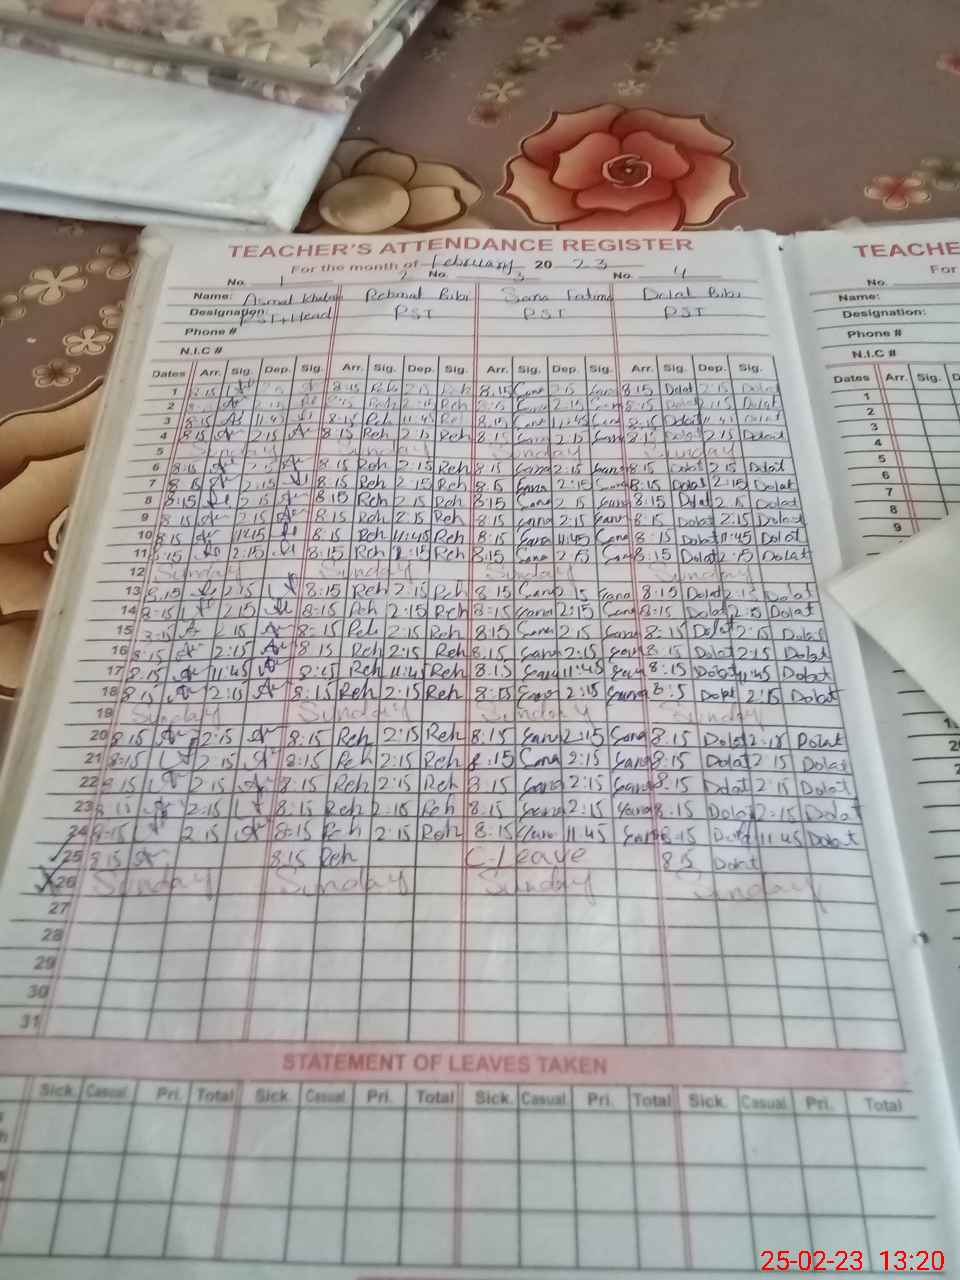 TEACHER'S ATTENDANCE REGISTER
For the month of February 2023
No. 1 No. 2 3 No. 4
Name: Asmat Rehmat Bibi Sana Fatima Dolat Bibi
Designation: PST+Head PST PST PST
Phone #
N.I.C #
Dates Arr. Sig. Dep. Sig. Arr. Sig. Dep. Sig. Arr. Sig. Dep. Sig. Arr. Sig. Dep. Sig.
1 8:15 Reh 2:15 Reh 8:15 Sana 2:15 Sana 8:15 Dolat 2:15 Dolat
2 Reh 2:15 Reh 8:15 Sana 2:15 Sana 8:15 Dolat 2:15 Dolat
3 8:15 11:45 8:15 Reh 11:45 Reh 8:15 Sana 11:45 Sana 8:15 Dolat 11:45 Dolat
4 8:15 2:15 8:15 Reh 2:15 Reh 8:15 Sana 2:15 Sana 8:15 Dolat 2:15 Dolat
5 Sunday Sunday Sunday Sunday
6 8:15 2:15 8:15 Reh 2:15 Reh 8:15 Sana 2:15 Sana 8:15 Dolat 2:15 Dolat
7 8:15 2:15 8:15 Reh 2:15 Reh 8:15 Sana 2:15 Sana 8:15 Dolat 2:15 Dolat
8 8:15 2:15 8:15 Reh 2:15 Reh 8:15 Sana 2:15 Sana 8:15 Dolat 2:15 Dolat
9 8:15 2:15 8:15 Reh 2:15 Reh 8:15 Sana 2:15 Sana 8:15 Dolat 2:15 Dolat
10 8:15 11:45 8:15 Reh 11:45 Reh 8:15 Sana 11:45 Sana 8:15 Dolat 11:45 Dolat
11 2:15 8:15 Reh 2:15 Reh 8:15 Sana 2:15 Sana 8:15 Dolat 2:15 Dolat
12 Sunday Sunday Sunday Sunday
13 8:15 2:15 8:15 Reh 2:15 Reh 8:15 Sana 2:15 Sana 8:15 Dolat 2:15 Dolat
14 8:15 2:15 8:15 Reh 2:15 Reh 8:15 Sana 2:15 Sana 8:15 Dolat 2:15 Dolat
15 8:15 2:15 8:15 Reh 2:15 Reh 8:15 Sana 2:15 Sana 8:15 Dolat 2:15 Dolat
16 8:15 2:15 8:15 Reh 2:15 Reh 8:15 Sana 2:15 Sana 8:15 Dolat 2:15 Dolat
17 8:15 11:45 8:15 Reh 11:45 Reh 8:15 Sana 11:45 Sana 8:15 Dolat 11:45 Dolat
18 8:15 2:15 8:15 Reh 2:15 Reh 8:15 Sana 2:15 Sana Dolat 2:15 Dolat
19 Sunday Sunday Sunday Sunday
20 8:15 2:15 8:15 Reh 2:15 Reh 8:15 Sana 2:15 Sana 8:15 Dolat 2:15 Dolat
21 8:15 2:15 8:15 Reh 2:15 Reh 8:15 Sana 2:15 Sana 8:15 Dolat 2:15 Dolat
22 8:15 2:15 8:15 Reh 2:15 Reh 8:15 Sana 2:15 Sana 8:15 Dolat 2:15 Dolat
23 8:15 2:15 8:15 Reh 2:15 Reh 8:15 Sana 2:15 Sana 8:15 Dolat 2:15 Dolat
24 8:15 2:15 8:15 Reh 2:15 Reh 8:15 Sana 11:45 Sana 8:15 Dolat 11:45 Dolat
25 8:15 8:15 Reh C-Leave 8:15 Dolat
26 Sunday Sunday Sunday Sunday
27
28
29
30
31
STATEMENT OF LEAVES TAKEN
Sick. Casual. Pri. Total Sick. Casual. Pri. Total Sick. Casual. Pri. Total Sick. Casual. Pri. Total
TEACHE
For
No.
Name:
Designation:
Phone #
N.I.C #
Dates Arr. Sig. D
1
2
3
4
5
6
7
8
9
25-02-23 13:20